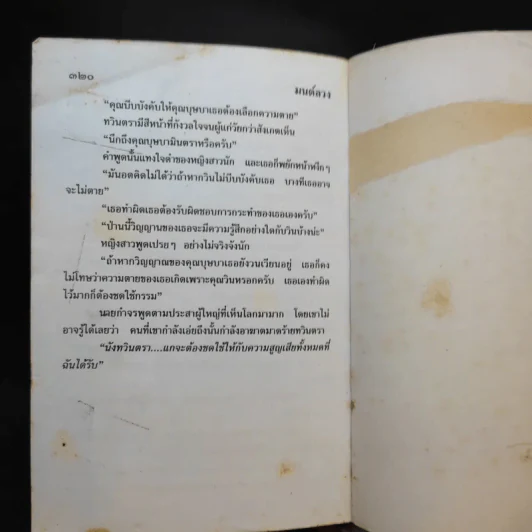 ๓๒๐
มนต์ลวง
“คุณบีบบังคับให้คุณบุษบาเธอต้องเลือกความตาย”
ทวินตรามีสีหน้าที่กังวลใจจนผู้แก่วัยกว่าสังเกตเห็น
“นึกถึงคุณบุษบามินตราหรือครับ”
คำพูดนั้นแทงใจดำของหญิงสาวนัก และเธอก็พยักหน้าหงึกๆ
“มันอดคิดไม่ได้ว่าถ้าหากวินไม่บีบบังคับเธอ บางทีเธออาจ
จะไม่ตาย”
“เธอทำผิดเธอต้องรับผิดชอบการกระทำของเธอเองครับ”
“ป่านนี้วิญญาณของเธอจะมีความรู้สึกอย่างใดกับวินบ้างน่ะ”
หญิงสาวพูดเปรยๆ อย่างไม่จริงจังนัก
“ถ้าหากวิญญาณของคุณบุษบาเธอยังวนเวียนอยู่ เธอก็คง
ไม่โทษว่าความตายของเธอเกิดเพราะคุณวินหรอกครับ เธอเองทำผิด
ไว้มากก็ต้องชดใช้กรรม”
นายกำจรพูดตามประสาผู้ใหญ่ที่เห็นโลกมามาก โดยเขาไม่
อาจรู้ได้เลยว่า คนที่เขากำลังเอ่ยถึงนั้นกำลังอาฆาตมาดร้ายทวินตรา
“นังทวินตรา....แกจะต้องชดใช้ให้กับความสูญเสียทั้งหมดที่
ฉันได้รับ”